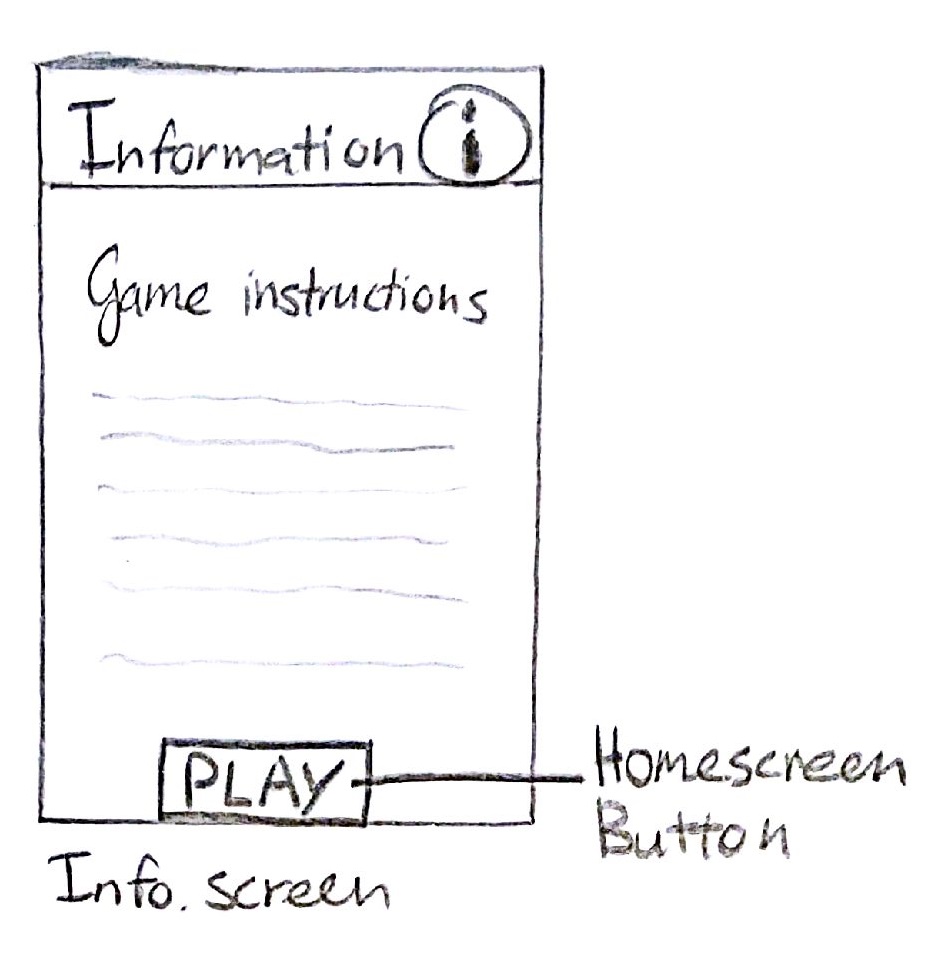 Information i
Game instructions
PLAY
Homescreen
Button
Info. screen